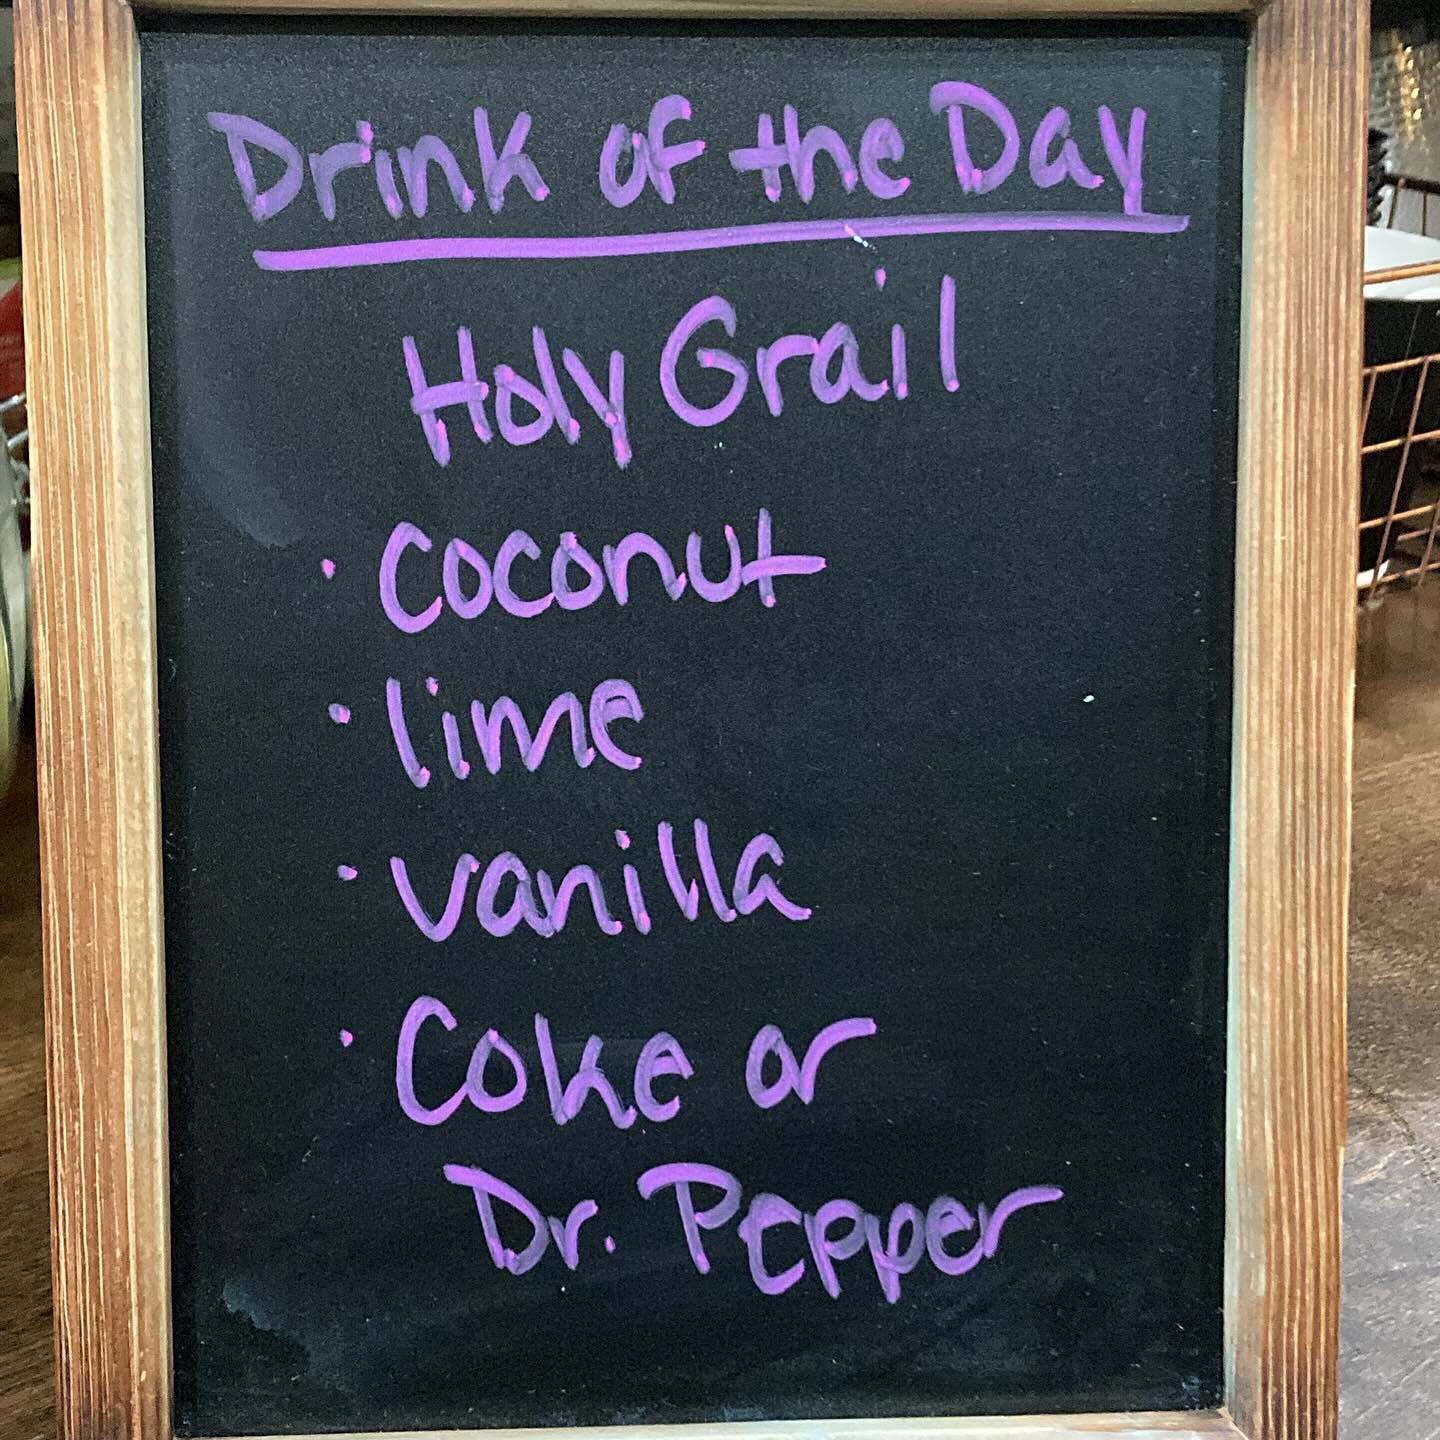 Drink of the Day
Holy Grail
· Coconut
· lime
· vanilla
· Coke or
Dr. Pepper